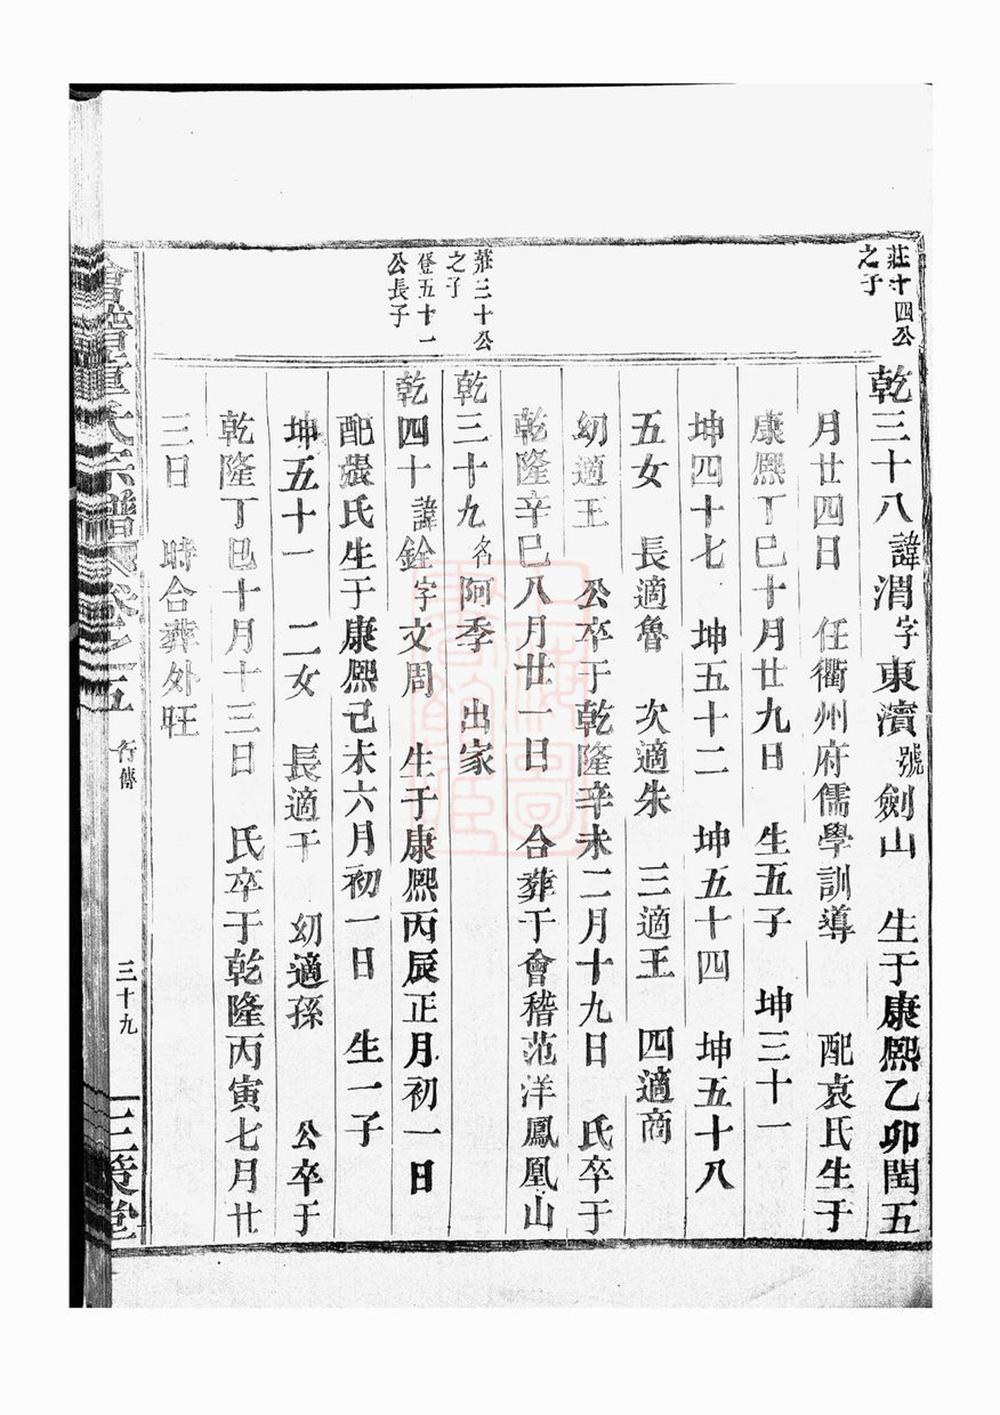 莊十四公
之子
乾三十八諱渭字東瀆號劍山　生于康熙乙卯閏五
月廿四日　任衢州府儒學訓導　配袁氏生于
康熙丁巳十月廿九日　生五子　坤三十一
坤四十七　坤五十二　坤五十四　坤五十八
五女　長適魯　次適朱　三適王　四適商
幼適王　公卒于乾隆辛未二月十九日　氏卒于
乾隆辛巳八月廿一日　合葬于會稽范洋鳳凰山
莊三十公
之子
乾三十九名阿季　出家
登五十一
公長子
乾四十諱銓字文周　生于康熙丙辰正月初一日
配張氏生于康熙己未六月初一日　生一子
坤五十一　二女　長適干　幼適孫　公卒于
乾隆丁巳十月十三日　氏卒于乾隆丙寅七月廿
三日　時合葬外旺
會稽章氏宗譜　卷之五　行傳　三十九　三策堂